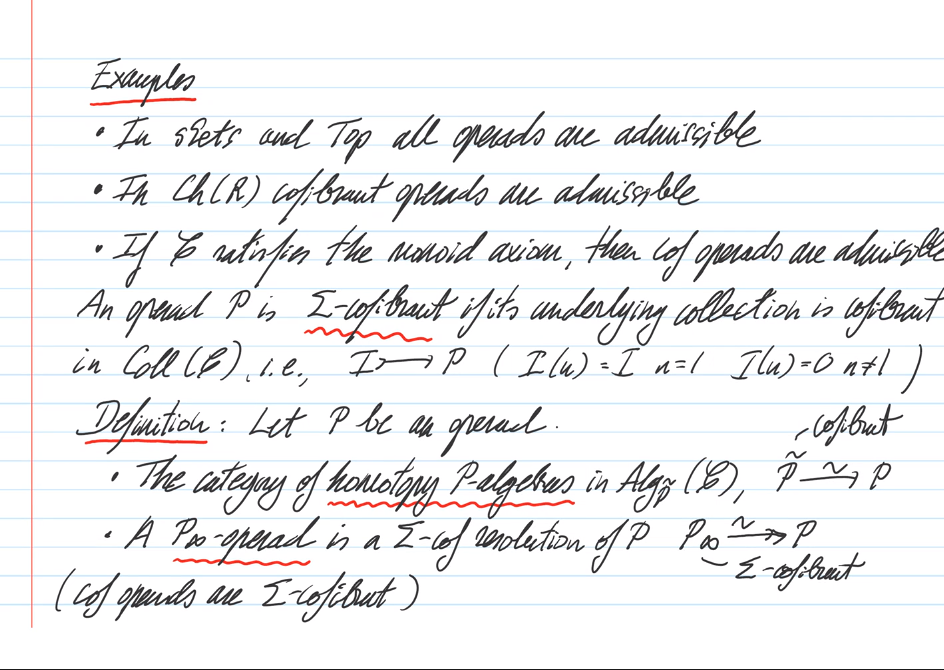 Examples
• In sSets and Top all operads are admissible
• In Ch(R) cofibrant operads are admissible
• If 𝒞 satisfies the monoid axiom, then cof operads are admissible
An operad P is Σ-cofibrant if its underlying collection is cofibrant
in Coll(𝒞), i.e., I ↣ P ( I(n) = I n=1 I(n)=0 n≠1 )
Definition: Let P be an operad.
cofibrant
• The category of homotopy P-algebras in Alg_P̃ (𝒞), P̃ ⥲ P
• A P∞-operad is a Σ-cof resolution of P P∞ ↠^~ P
Σ-cofibrant
(cof operads are Σ-cofibrant)